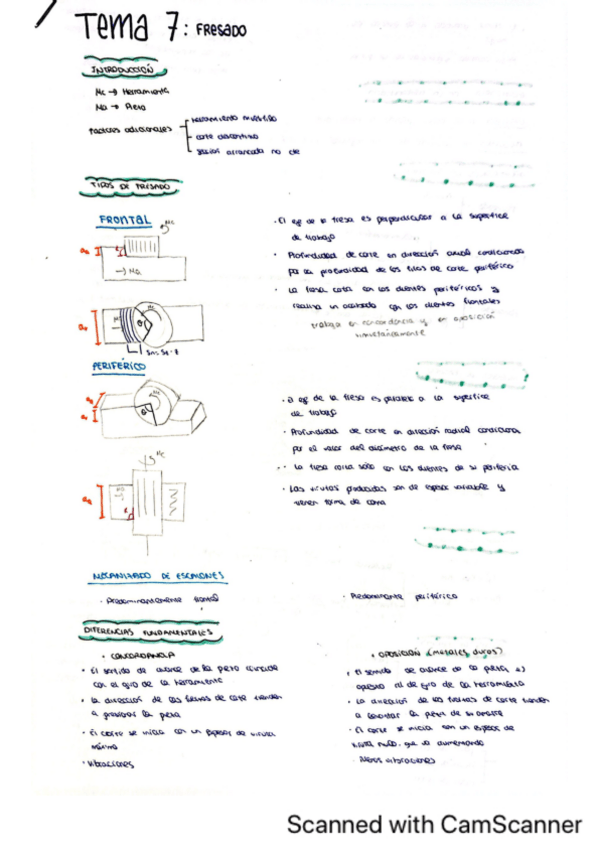 Tema 7: FRESADO
INTRODUCCIÓN
Mc → Herramienta
Ma → Pieza
Factores adicionales
herramienta multifilo
corte discontinuo
sección arrancada no cte
TIPOS DE FRESADO
FRONTAL
Mc
→ Ma
· El eje de la fresa es perpendicular a la superficie
de trabajo
· Profundidad de corte en dirección axial condicionada
por la profundidad de los filos de corte periférico
· La fresa corta con los dientes periféricos y
realiza un acabado con los dientes frontales
trabaja en concordancia y en oposición
simultáneamente
PERIFÉRICO
Mc
· El eje de la fresa es paralelo a la superficie
de trabajo
· Profundidad de corte en dirección radial condiciona
por el valor del diámetro de la fresa
· La fresa corta sólo con los dientes de su periferia
· Las virutas producidas son de espesor variable y
tienen forma de coma
MECANIZADO DE ESCALONES
· Predominantemente frontal
· Predominante periférico
DIFERENCIAS FUNDAMENTALES
· CONCORDANCIA
· El sentido de avance de la pieza coincide
con el giro de la herramienta
· la dirección de las fuerzas de corte tienden
a presionar la pieza
· El corte se inicia con un espesor de viruta
máximo
· vibraciones
· OPOSICIÓN (metales duros)
· El sentido de avance de la pieza es
opuesto al de giro de la herramienta
· La dirección de las fuerzas de corte tienden
a levantar la pieza de su amarre
· El corte se inicia con un espesor de
viruta nulo, que va aumentando
· vibraciones
Scanned with CamScanner